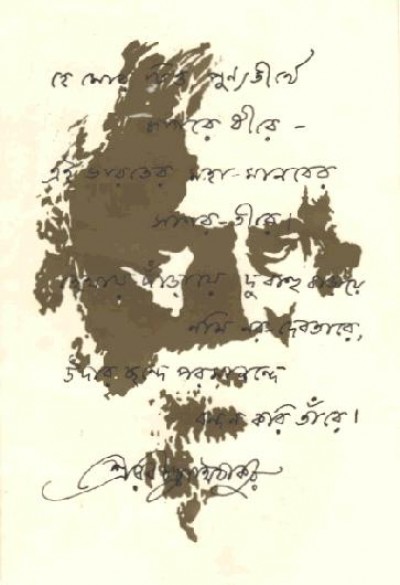 হে মোর চিত্ত, পুণ্য তীর্থে
জাগো রে ধীরে –
এই ভারতের মহা-মানবের
সাগর-তীরে।
হেথায় দাঁড়ায়ে দু বাহু বাড়ায়ে
নমি নর-দেবতারে,
উদার ছন্দে পরমানন্দে
বন্দন করি তাঁরে।
শ্রীরবীন্দ্রনাথ ঠাকুর